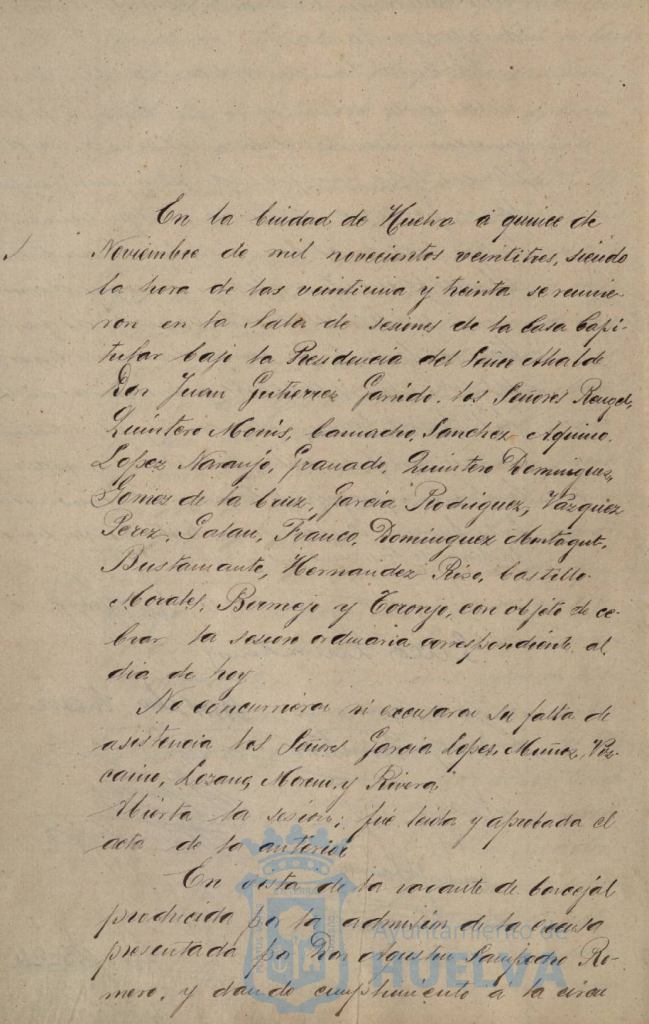 En la Ciudad de Huelva á quince de
Noviembre de mil novecientos veintitres, siendo
la hora de las veintiuna y treinta se reunie-
ron en la Sala de sesiones de la Casa Capi-
tular bajo la Presidencia del Señor Alcalde
Don Juan Gutierrez Garrido, los Señores Rengel,
Quintero Monis, Camacho, Sanchez Aquino,
Lopez Naranjo, Granado, Quintero Dominguez,
Gomez de la Cruz, Garcia Rodriguez, Vazquez
Perez, Galan, Franco, Dominguez Antagut,
Bustamante, Hernandez Riso, Castillo
Morales, Bermejo y Toronjo, con objeto de ce-
brar la sesion ordinaria correspondiente al
dia de hoy
No concurrieron ni excusaron su falta de
asistencia los Señores Garcia Lopez, Muñoz, Viz-
caino, Lozano, Moreno y Rivera
Abierta la sesion; fué leida y aprobada el
acta de la anterior
En vista de la vacante de Concejal
producida por la admision de la excusa
presentada por Don Agustin Sampedro Ro-
mero, y dando cumplimiento a la circu
Ayuntamiento de
HUELVA